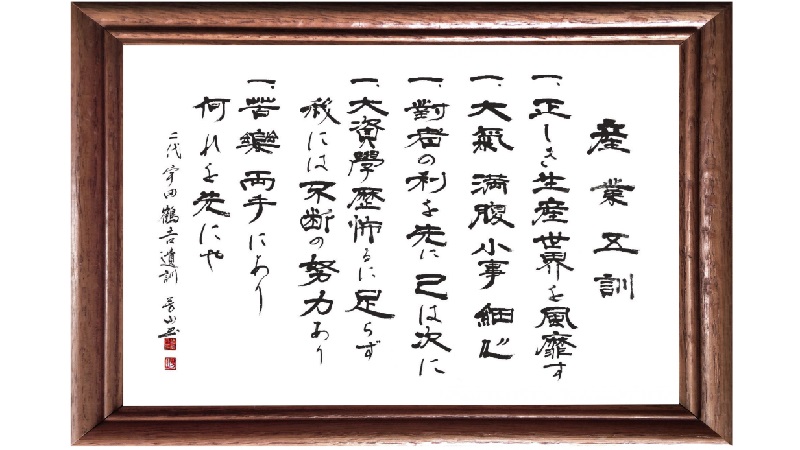 産業五訓
一、正しき生産世界を風靡す
一、大氣満腹小事細心
一、對者の利を先に己は次に
一、大資學歴怖るに足らず
我には不断の努力あり
一、苦樂両手にあり
何れを先にや
二代 宇田鶴吉遺訓